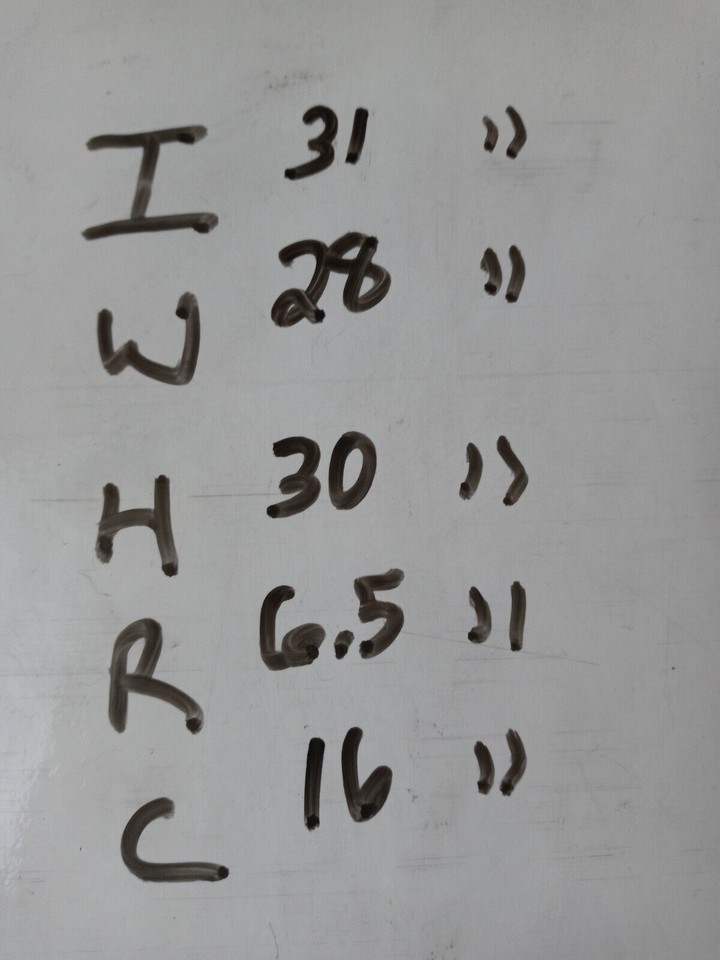 I 31 "
W 28 "
H 30 "
R 6.5 "
C 16 "